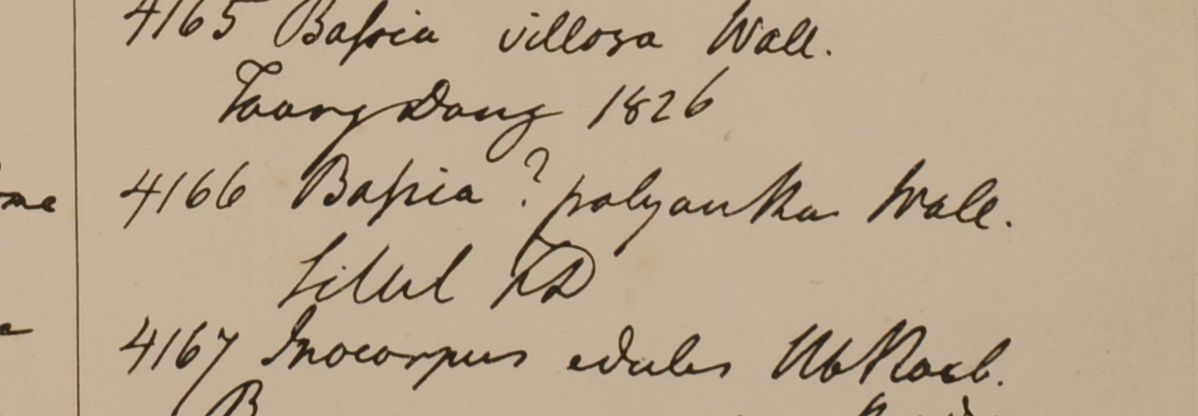 4165 Baſsia villosa Wall.
Taong Dong 1826
4166 Baſsia ? polyantha Wall.
Sillet FD
4167 Inocarpus edulis Hb Roxb.